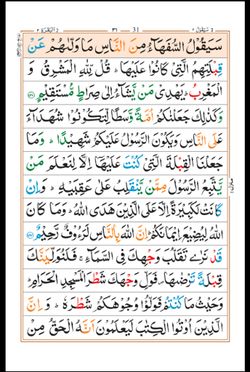 سَيَقُوۡلُ السُّفَهَآءُ مِنَ النَّاسِ مَا وَلّٰٮهُمۡ عَنۡ
قِبۡلَتِهِمُ الَّتِىۡ كَانُوۡا عَلَيۡهَا‌ ؕ قُل لِّلّٰهِ الۡمَشۡرِقُ وَ
الۡمَغۡرِبُ ؕ يَهۡدِىۡ مَنۡ يَّشَآءُ اِلٰى صِراطٍ مُّسۡتَقِيۡمٍ
وَكَذٰلِكَ جَعَلۡنٰكُمۡ اُمَّةً وَّسَطًا لِّتَکُوۡنُوۡا شُهَدَآءَ
عَلَى النَّاسِ وَيَكُوۡنَ الرَّسُوۡلُ عَلَيۡكُمۡ شَهِيۡدًا ؕ وَمَا
جَعَلۡنَا الۡقِبۡلَةَ الَّتِىۡ كُنۡتَ عَلَيۡهَآ اِلَّا لِنَعۡلَمَ مَنۡ
يَّتَّبِعُ الرَّسُوۡلَ مِمَّنۡ يَّنۡقَلِبُ عَلٰى عَقِبَيۡهِ ؕ وَاِنۡ
كَانَتۡ لَكَبِيۡرَةً اِلَّا عَلَى الَّذِيۡنَ هَدَى اللّٰهُ ؕ وَمَا كَانَ
اللّٰهُ لِيُضِيْعَ اِيۡمَانَكُمۡ ؕ اِنَّ اللّٰهَ بِالنَّاسِ لَرَءُوۡفٌ رَّحِيۡمٌ
قَدۡ نَرٰى تَقَلُّبَ وَجۡهِكَ فِى السَّمَآءِ ۚ فَلَنُوَلِّيَنَّكَ
قِبۡلَةً تَرۡضٰٮهَا ۪ فَوَلِّ وَجۡهَكَ شَطۡرَ الۡمَسۡجِدِ الۡحَـرَامِ ؕ
وَحَيۡثُ مَا كُنۡتُمۡ فَوَلُّوۡا وُجُوۡهَكُمۡ شَطۡرَهٗ ؕ وَاِنَّ
الَّذِيۡنَ اُوۡتُوا الۡكِتٰبَ لَيَـعۡلَمُوۡنَ اَنَّهُ الۡحَـقُّ مِنۡ